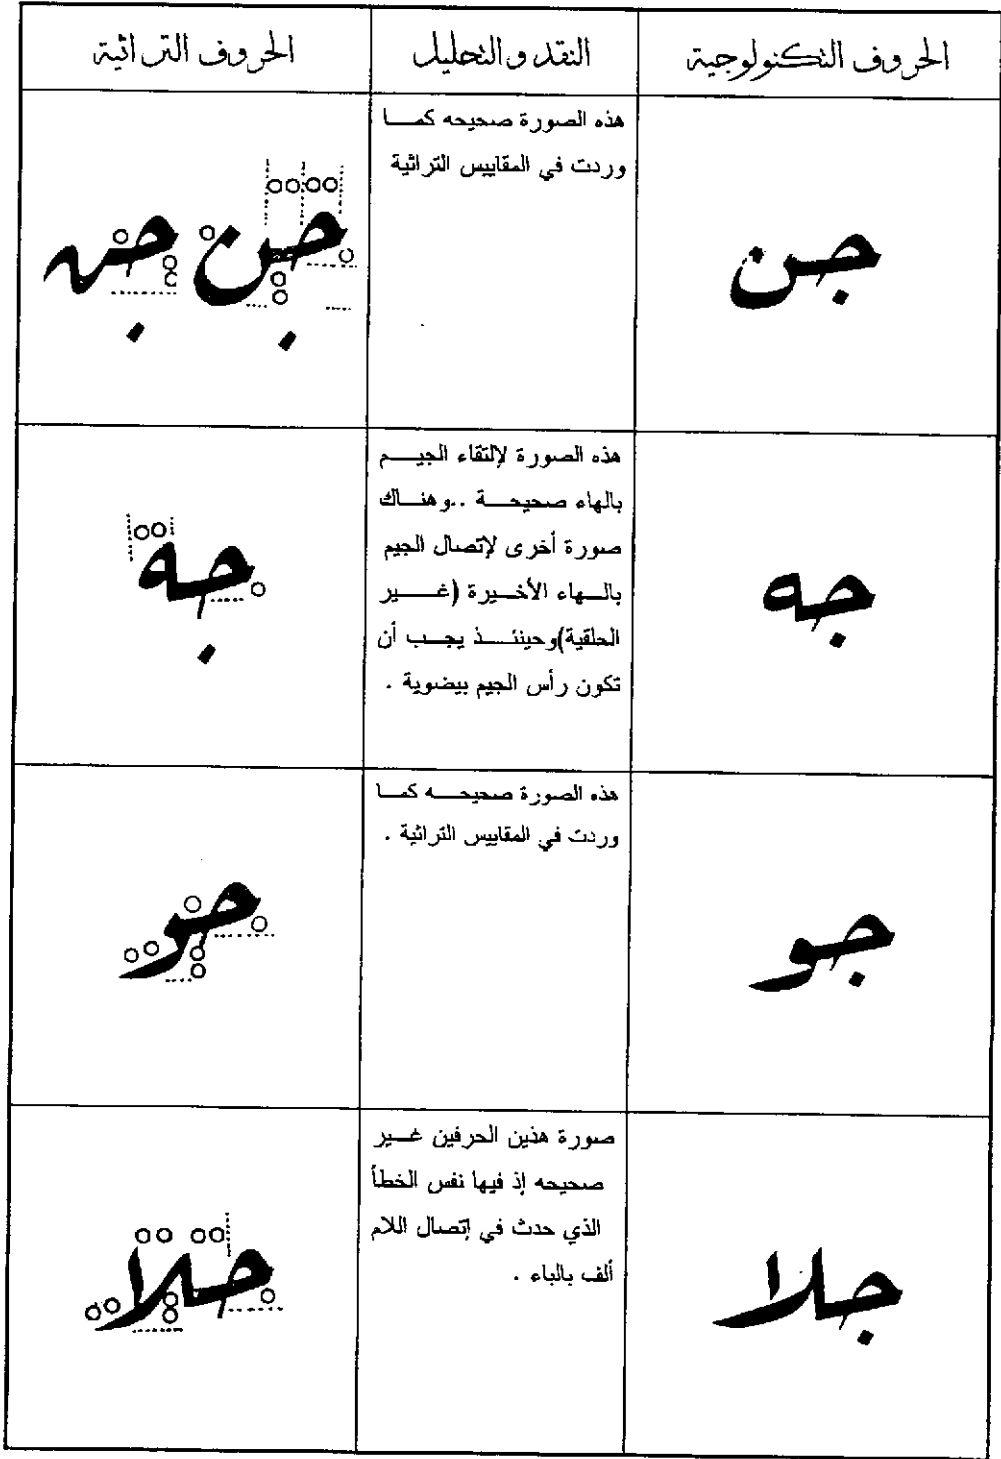 الحروف التكنولوجية
النقد والتحليل
الحروف التراثية
جن
هذه الصورة صحيحه كما
وردت في المقاييس التراثية
جن جن
جه
هذه الصورة لإلتقاء الجيم
بالهاء صحيحة ..وهناك
صورة أخرى لإتصال الجيم
بالهاء الأخيرة (غير
الحلقية)وحينئذ يجب أن
تكون رأس الجيم بيضوية .
جه
جو
هذه الصورة صحيحه كما
وردت في المقاييس التراثية .
حو
جلا
صورة هذين الحرفين غير
صحيحه إذ فيها نفس الخطأ
الذي حدث في إتصال اللام
ألف بالباء .
حلا